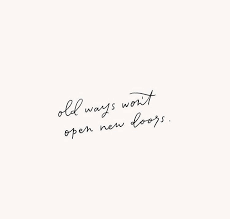 old ways won't
open new doors.